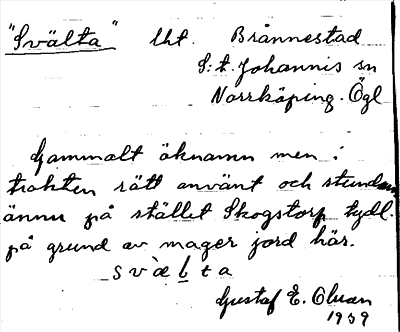 "Svälta" lht. Brånnestad
S:t. Johannis sn
Norrköping. Ögl
Gammalt öknamn men i
trakten rätt använt och stundom
ännu på stället Skogstorp tydl.
på grund av mager jord här.
svὰlta
Gustaf E. Olsson
1939